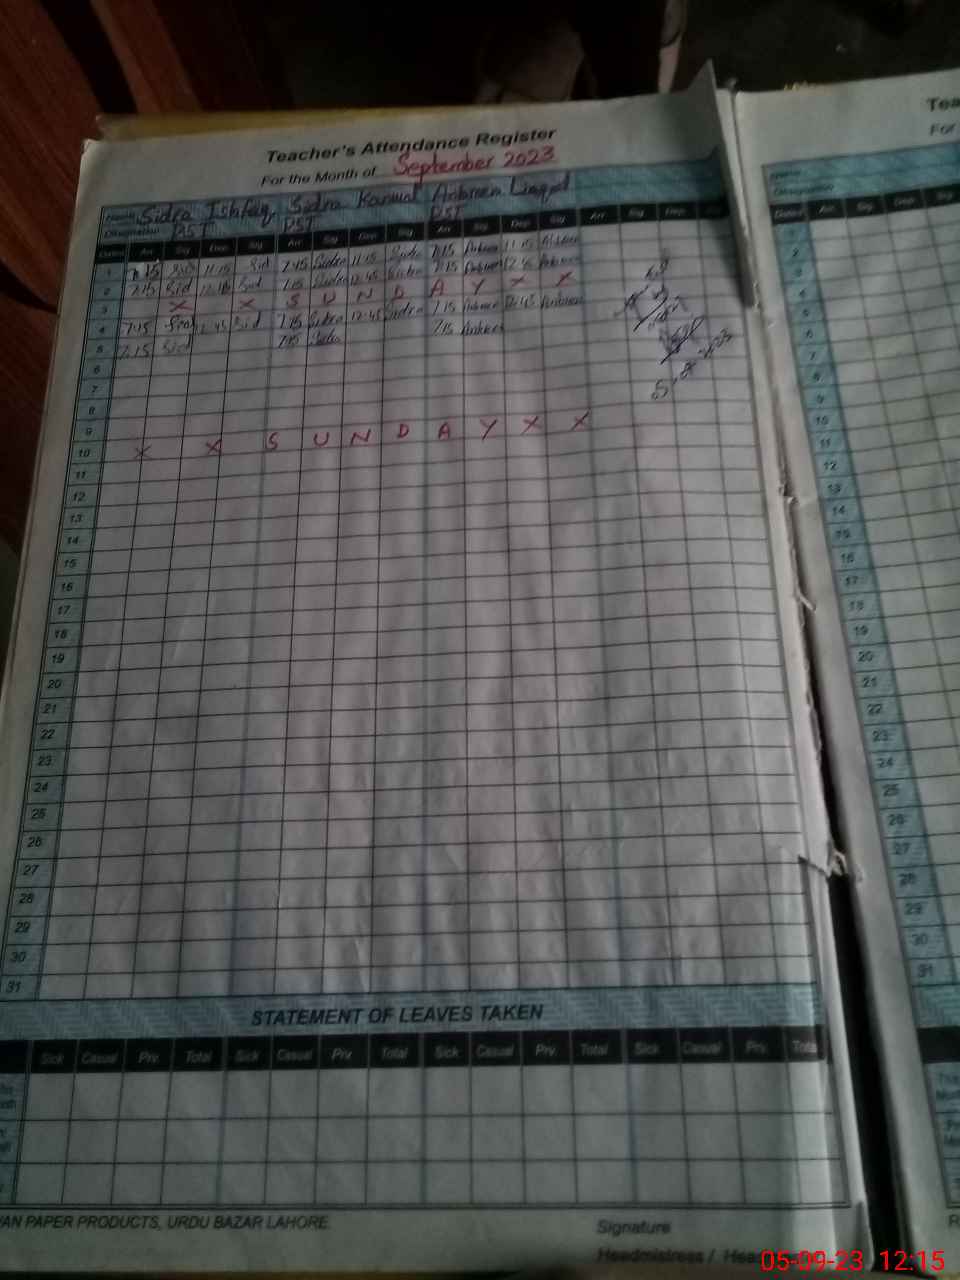 Teacher's Attendance Register
For the Month of September 2023
Name Sidra Ishfaq Sidra Kanwal Anbreen Liaqat
Designation PST PST PST
Dates Arr Sig Dep Sig Arr Sig Dep Sig Arr Sig Dep Sig Arr Sig Dep
1 7:15 Sid 11:15 Sid 7:15 Sidra 11:15 Sidra 7:15 11:15
2 7:15 Sid 12:45 Sid 7:15 Sidra 12:45 Sidra 7:15 12:45
3 X X S U N D A Y X X
4 7:15 Sid 12:45 Sid 7:15 Sidra 12:45 Sidra 7:15 12:45
5 7:15 Sid 7:15 Sidra 7:15
6
7
8
9
10 X X S U N D A Y X X
11
12
13
14
15
16
17
18
19
20
21
22
23
24
25
26
27
28
29
30
31
STATEMENT OF LEAVES TAKEN
Sick Casual Prv. Total Sick Casual Prv Total Sick Casual Prv. Total Sick Casual Prv. Tota
AN PAPER PRODUCTS, URDU BAZAR LAHORE.
Signature
Headmistress / Hea
Tea
For
Name
Designation
Dates Arr. Sig. Dep. Sig
1
2
3
4
5
6
7
8
9
10
11
12
13
14
15
16
17
18
19
20
21
22
23
24
25
26
27
28
29
30
31
05-09-23 12:15